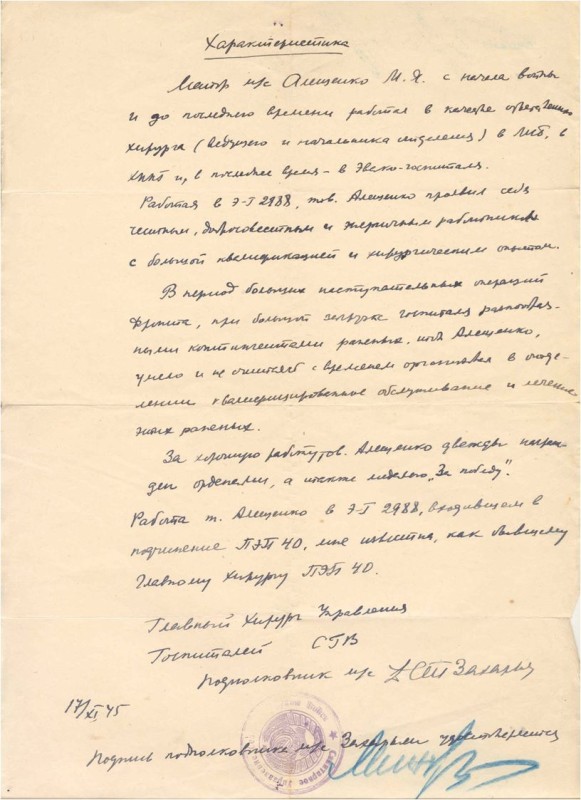 Характеристика
Майор м/с Алещенко М. Я. с начала войны
и до последнего времени работал в качестве ответственного
хирурга (ведущего и начальника отделения) в
ХППГ и, в последнее время – в Эвако-госпитале.
Работая в Э-Г 2988, тов. Алещенко проявил себя
честным, добросовестным и энергичным работником
с большой квалификацией и хирургическим опытом.
В период больших наступательных операций
фронта, при большой загрузке госпиталя
контингентами раненых, тов. Алещенко,
умело и не считаясь с временем организовал в отде-
лении квалифицированное обслуживание и лечение
этих раненых.
За хорошую работу тов. Алещенко дважды награж-
ден орденами, а также медалью „За победу".
Работа т. Алещенко в Э-Г 2988, входившем в
подчинение ПЭП 40, мне известна, как бывшему
Главному хирургу ПЭП 40.
Главный Хирург Управления
Госпиталей СГВ
подполковник м/с
17/XI 45
Подпись подполковника м/с удостоверяется